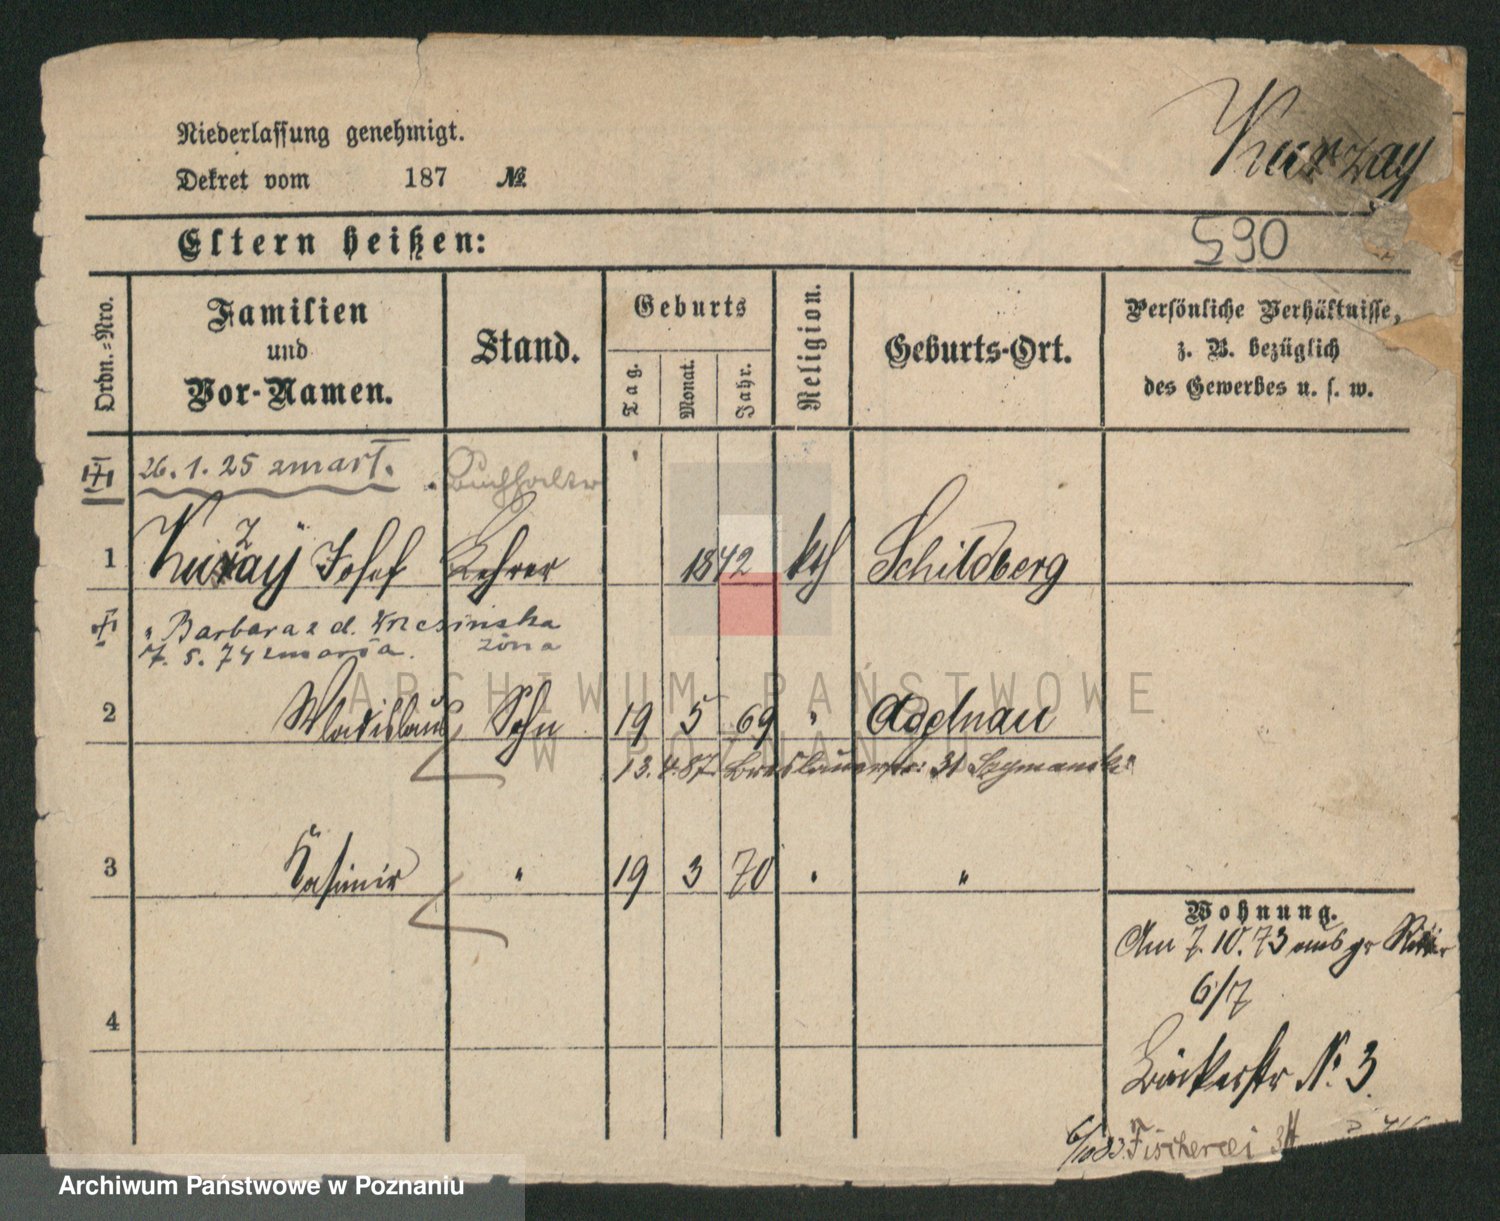 Niederlassung genehmigt.
Dekret vom 187 №
Kurzay
Eltern heißen:
590
Ordn.-Nro.
Familien
und
Vor-Namen.
Stand.
Geburts
Tag.
Monat.
Jahr.
Religion.
Geburts-Ort.
Persönliche Verhältnisse,
z. B. bezüglich
des Gewerbes u. s. w.
26. 1. 25 zmarł. Buchhalter
1 Josef Lehrer 1842 kth Schildberg
" Barbara z d. Wrzesinska
7. 5. 74 zmarła. żona
2 Wladislaus Sohn 19 5 69 " Adelnau
13. 4. 87. Breslauerstr: 31 Szymanski
3 Kasimir " 19 3 70 " "
Wohnung.
Am 7. 10. 73 aus gr Ritter
6/7
Bäckerstr N: 3.
4
6/10 83. Fischerei
ARCHIWUM PAŃSTWOWE
W POZNANIU
Archiwum Państwowe w Poznaniu